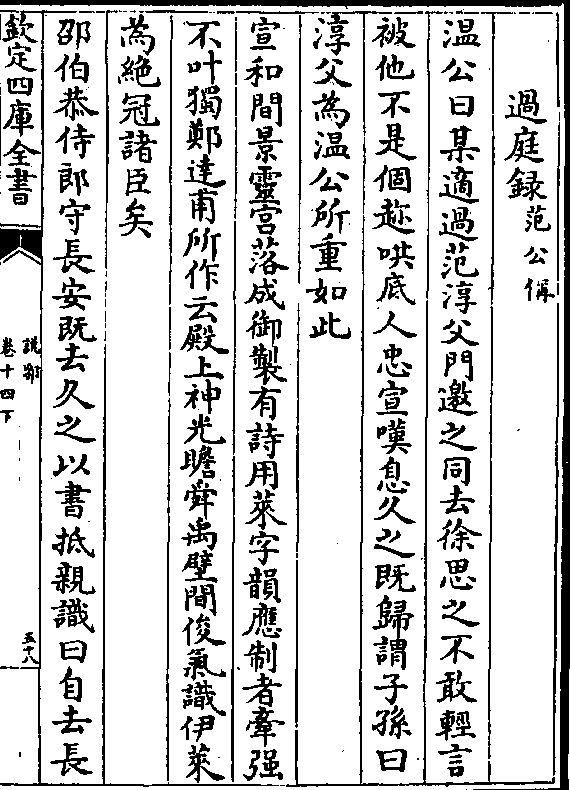 過庭録范公偁
温公曰某適過范淳父門邀之同去徐思之不敢輕言
被他不是個趂哄底人忠宣嘆息久之既歸謂子孫曰
淳父為温公所重如此
宣和間景靈宮落成御製有詩用萊字韻應制者牽强
不叶獨鄭達甫所作云殿上神光瞻舜禹壁間俊氣識伊萊
為絶冠諸臣矣
邵伯恭侍郎守長安既去久之以書抵親識曰自去長
欽定四庫全書
說郛
卷十四下
五十八